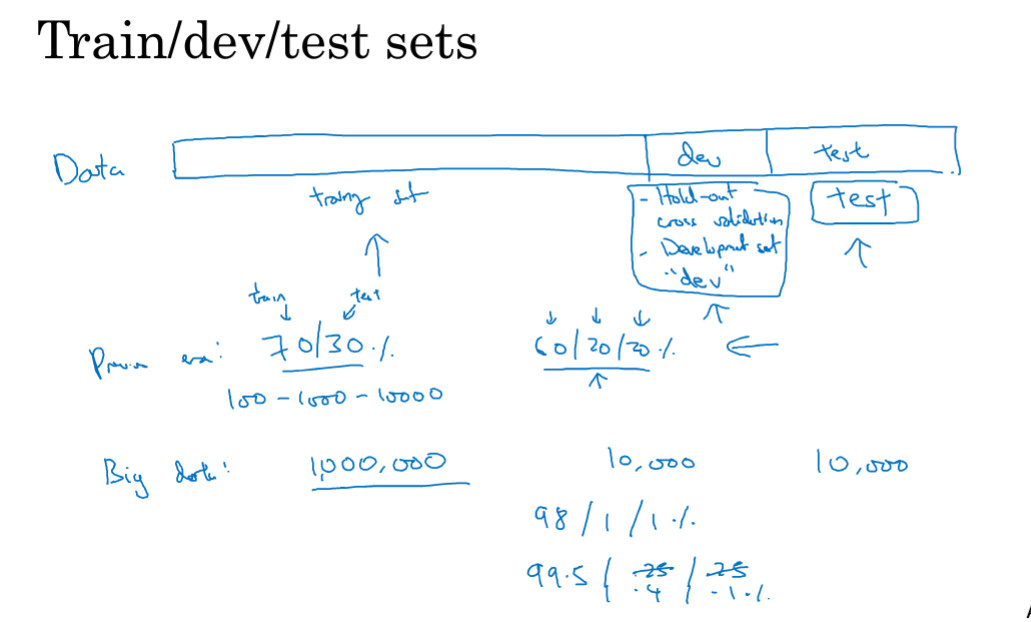 Train/dev/test sets
Data dev test
traing set
- Hold-out
cross validation
- Development set
"dev"
test
train test
70/30% 60/20/20%
era:
100 - 1000 - 10000
Big data: 1,000,000 10,000 10,000
98/1/1%
99.5/.25/.25
.4 .1%